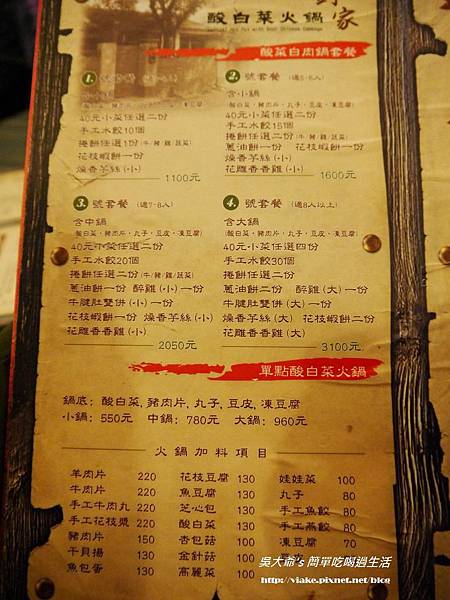 家
酸白菜火鍋
酸菜白肉鍋套餐
1. 號套餐
含小鍋
40元小菜任選二份
手工水餃10個
捲餅任選1份(牛/豬/雞/蔬菜)
花枝蝦餅一份
燥香芋絲(小)
1100元
2. 號套餐 (適5-6人)
含小鍋
(酸白菜,豬肉片,丸子,豆皮,凍豆腐)
40元小菜任選二份
手工水餃15個
捲餅任選二份(牛/豬/雞/蔬菜)
蔥油餅一份 花枝蝦餅一份
燥香芋絲(小)
花雕香香雞(小)
1600元
3. 號套餐 (適7-8人)
含中鍋
(酸白菜,豬肉片,丸子,豆皮,凍豆腐)
40元小菜任選二份
手工水餃20個
捲餅任選二份(牛/豬/雞/蔬菜)
蔥油餅一份 醉雞(小)一份
牛腱肚雙併(小)一份
花枝蝦餅一份 燥香芋絲(小)
花雕香香雞(小)
2050元
4. 號套餐 (適8人以上)
含大鍋
(酸白菜,豬肉片,丸子,豆皮,凍豆腐)
40元小菜任選四份
手工水餃30個
捲餅任選二份(牛/豬/雞/蔬菜)
蔥油餅二份 醉雞(大)一份
牛腱肚雙併(大)一份
燥香芋絲(大) 花枝蝦餅二份
花雕香香雞(大)
3100元
單點酸白菜火鍋
鍋底:酸白菜,豬肉片,丸子,豆皮,凍豆腐
小鍋:550元 中鍋:780元 大鍋:960元
火鍋加料項目
羊肉片 220
牛肉片 220
手工牛肉丸 220
手工花枝漿 220
豬肉片 150
干貝揚 130
魚包蛋 130
花枝豆腐 130
魚豆腐 130
芝心包 130
酸白菜 130
杏包菇 100
金針菇 100
高麗菜 100
娃娃菜 100
丸子 80
手工魚餃 80
手工燕餃 80
凍豆腐 70
吳大爺's 簡單吃喝過生活
http://viake.pixnet.net/blog